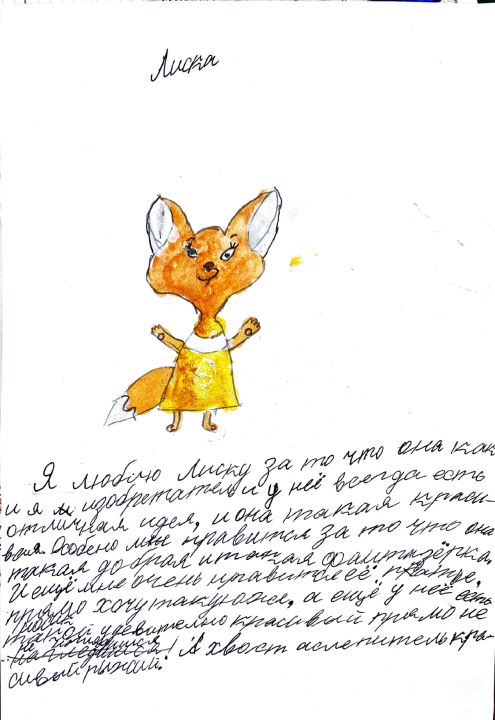 Лиска
Я люблю Лиску за то что она как
и я изобретатель и у неё всегда есть
отличная идея, и она такая краси-
вая. Особено мне нравится за то что она
такая добрая и такая фантазёрка.
И ещё мне очень нравится её
прямо хочу такую же, а ещё у неё есть
такой удивительно красивый прямо не
! А хвост аслепительнокра-
сивый рыжий.